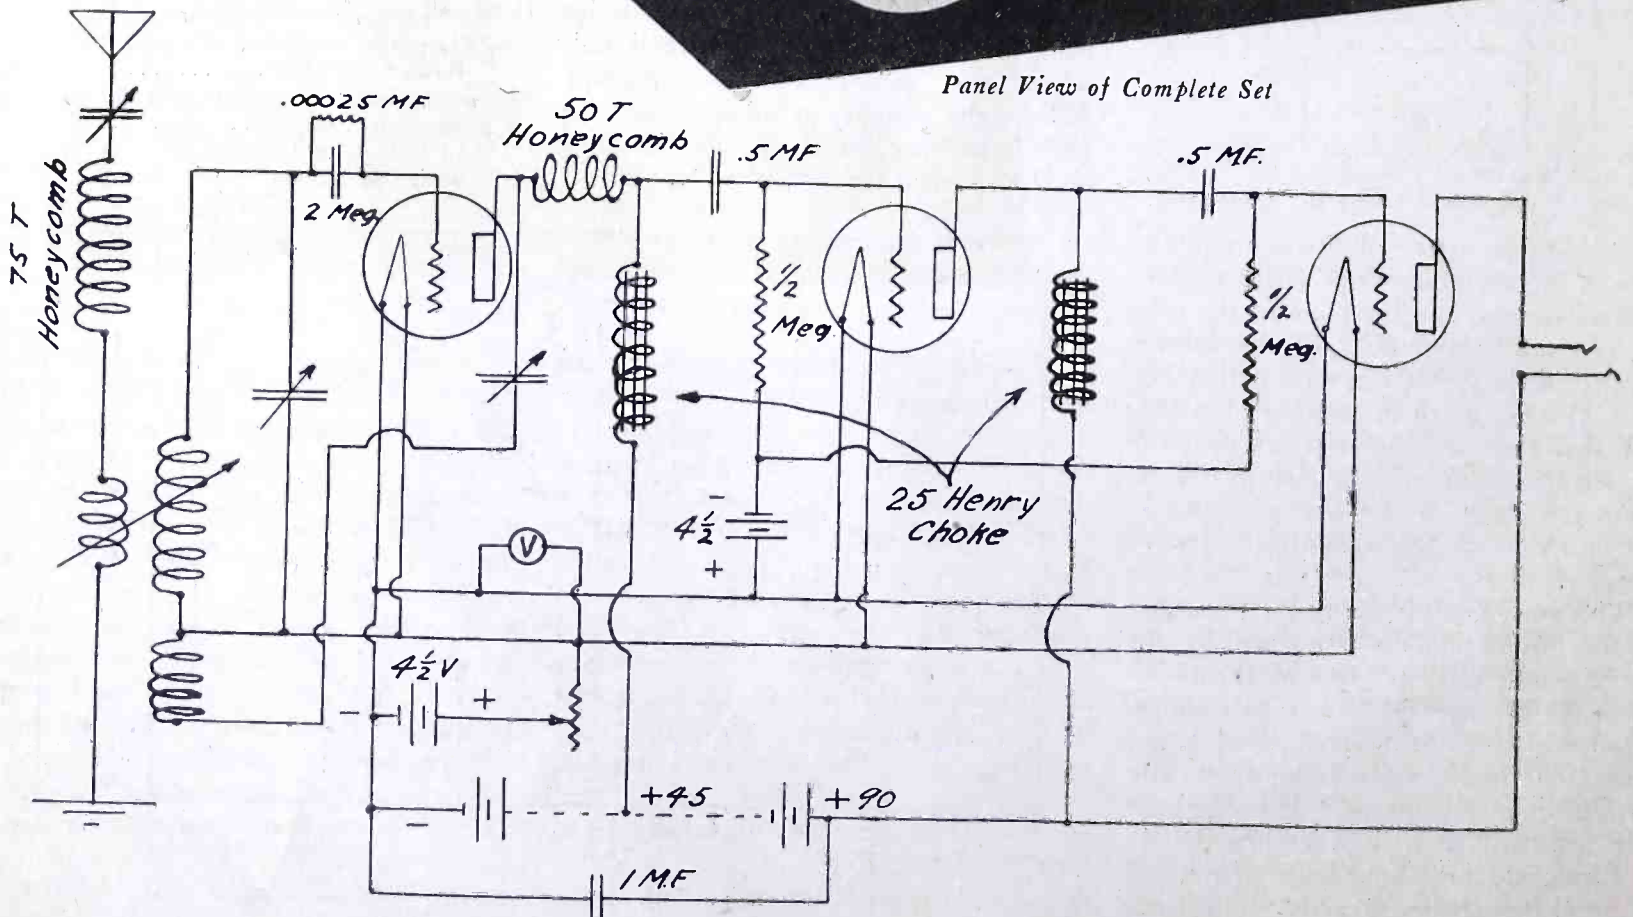 Panel View of Complete Set
75 T
Honeycomb
.00025 MF
2 Meg.
50 T
Honeycomb
.5 MF
1/2
Meg
.5 MF.
1/2
Meg.
25 Henry
Choke
-
4½
+
V
4½ V
-
+
-
+45
+90
1 M.F